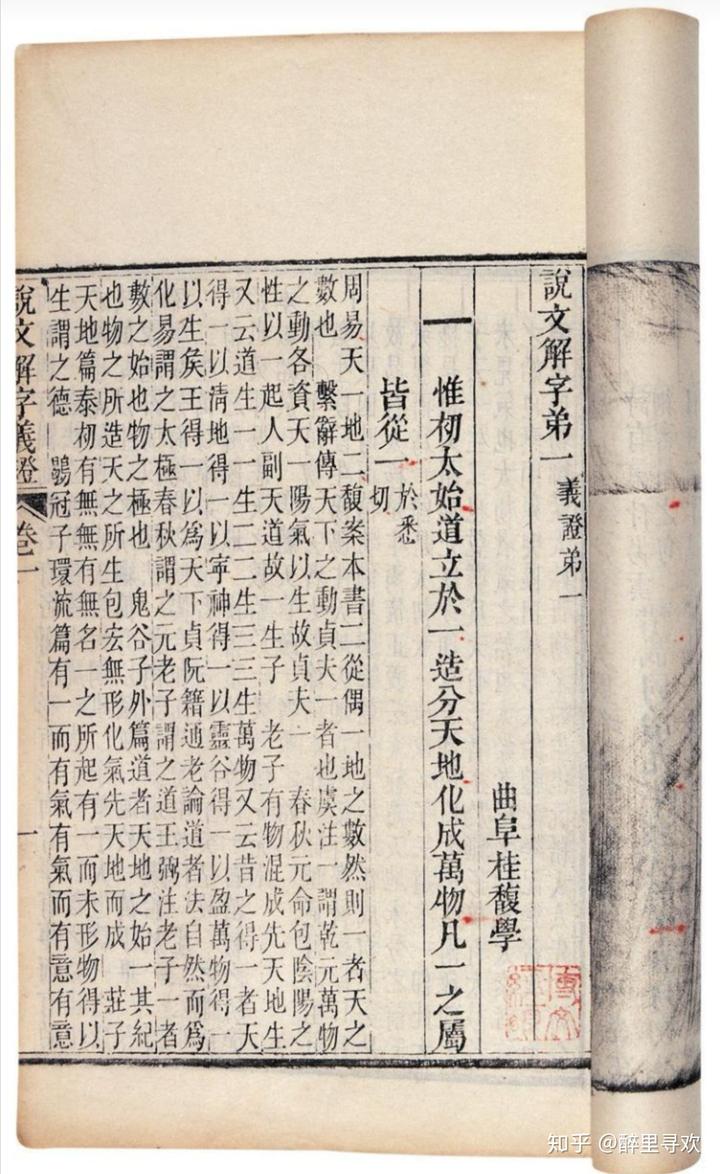 說文解字弟一
義證弟一
曲阜桂馥學
一
惟初太始道立於一造分天地化成萬物凡一之屬
皆從一
於悉
切
周易天一地二馥案本書二從偶一地之數然則一者天之
數也 繫辭傳天下之動貞夫一者也虞注一謂乾元萬物
之動各資天一陽氣以生故貞夫一 春秋元命包陰陽之
性以一起人副天道故一生子 老子有物混成先天地生
又云道生一一生二二生三三生萬物又云昔之得一者天
得一以清地得一以寜神得一以靈谷得一以盈萬物得一
以生矦王得一以爲天下貞阮籍通老論道者法自然而爲
化易謂之太極春秋謂之元老子謂之道王弼注老子一者
數之始也物之極也 鬼谷子外篇道者天地之始一其紀
也物之所造天之所生包宏無形化氣先天地而成 莊子
天地篇泰初有無無有無名一之所起有一而未形物得以
生謂之德 鶡冠子環流篇有一而有氣有氣而有意有意
說文解字義證 卷一
一
知乎 @醉里寻欢